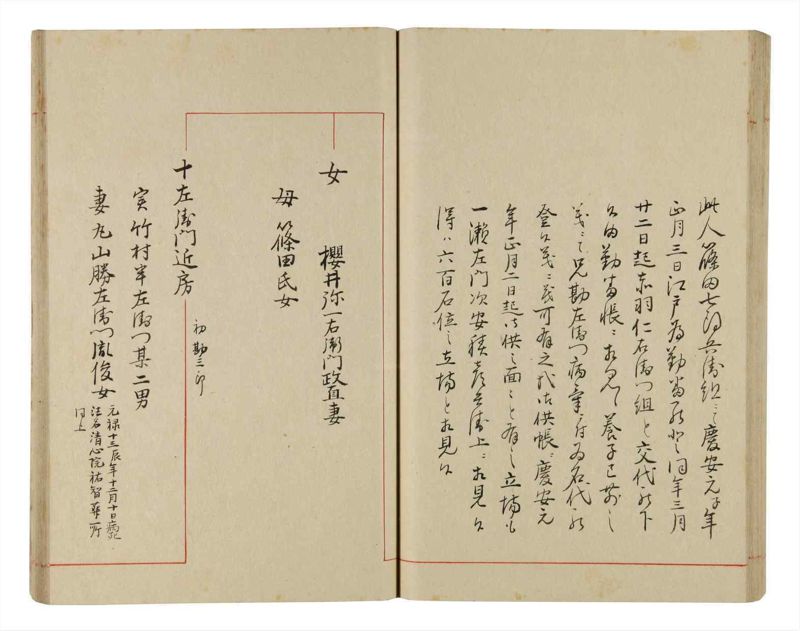 此人篠田七郎兵衛組ニ而慶安元子年
正月三日江戸為勤番罷登同年三月
廿二日起赤羽仁右衛門組と交代罷下
候由勤番帳ニ相見へ養子已前之
義ニ而兄勘左衛門病気ニ付為名代罷
登候義ニ茂可有之哉御供帳ニ慶安元
年正月二日起御供之面々と有之立場も
一瀬左門次安積彦兵衛上ニ相見候
得ハ六百石位之立場と相見候
女 櫻井弥一右衛門政直妻
母篠田氏女
十左衛門近房 初勘三郎
実竹村半左衛門某二男
妻丸山勝左衛門胤俊女
元禄十三辰年十二月十日病死
法名清心院祐智 葬所
同上